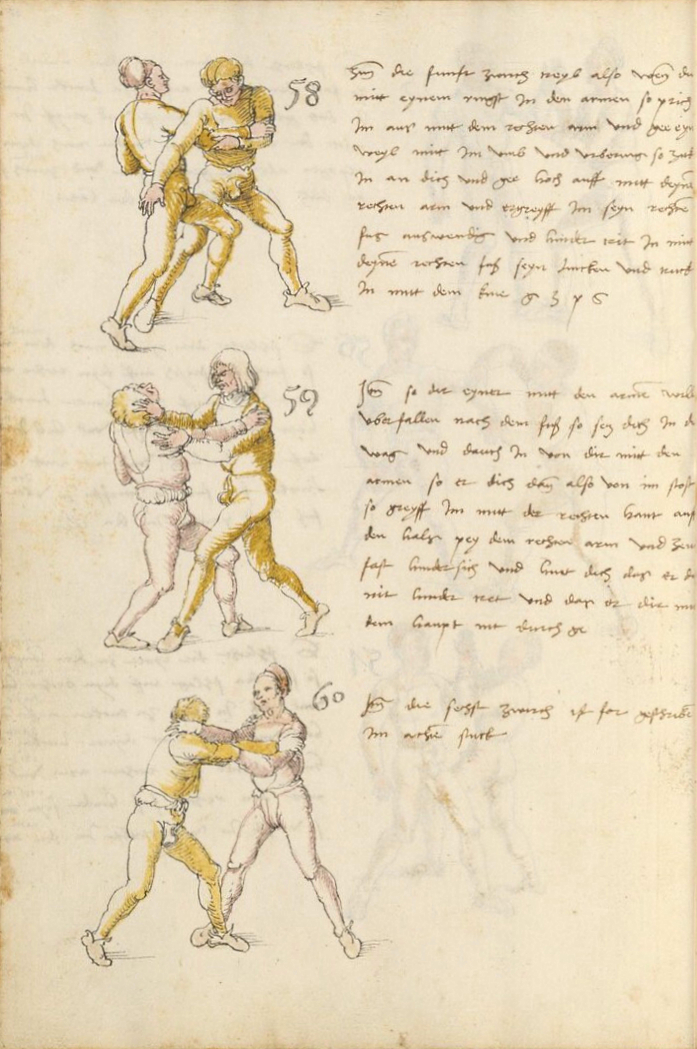 58
Itm die funfft zwirch weyl also wen du
mitt eynem ringst In den armen so prich
Im aus mitt dem rechten arm und gee eyn
weyl mitt im umb und so zuck
In an dich und gee hoch auff mitt deym
rechten arm und ergreyff Im seyn rechte
fus auswendig und hinder trit In mitt
deyne rechten fus seyn lincken und ruck
In mitt dem knie
59
Itm so dir eyner mitt den armen will
uberfallen nach dem fus so secz dich In d
wag und dauch In von dir mitt den
armen so er dich dan also von im stost
so greyff Im mitt der rechten hant auf
den hals pey dem rechten arm und
fast hindersich und hutt dich das er d
nit hinder tret und das er dir mit
dem haupt nit durch ge
60
Itm die sechst zwirch ist for geschriben
Im achten stuck